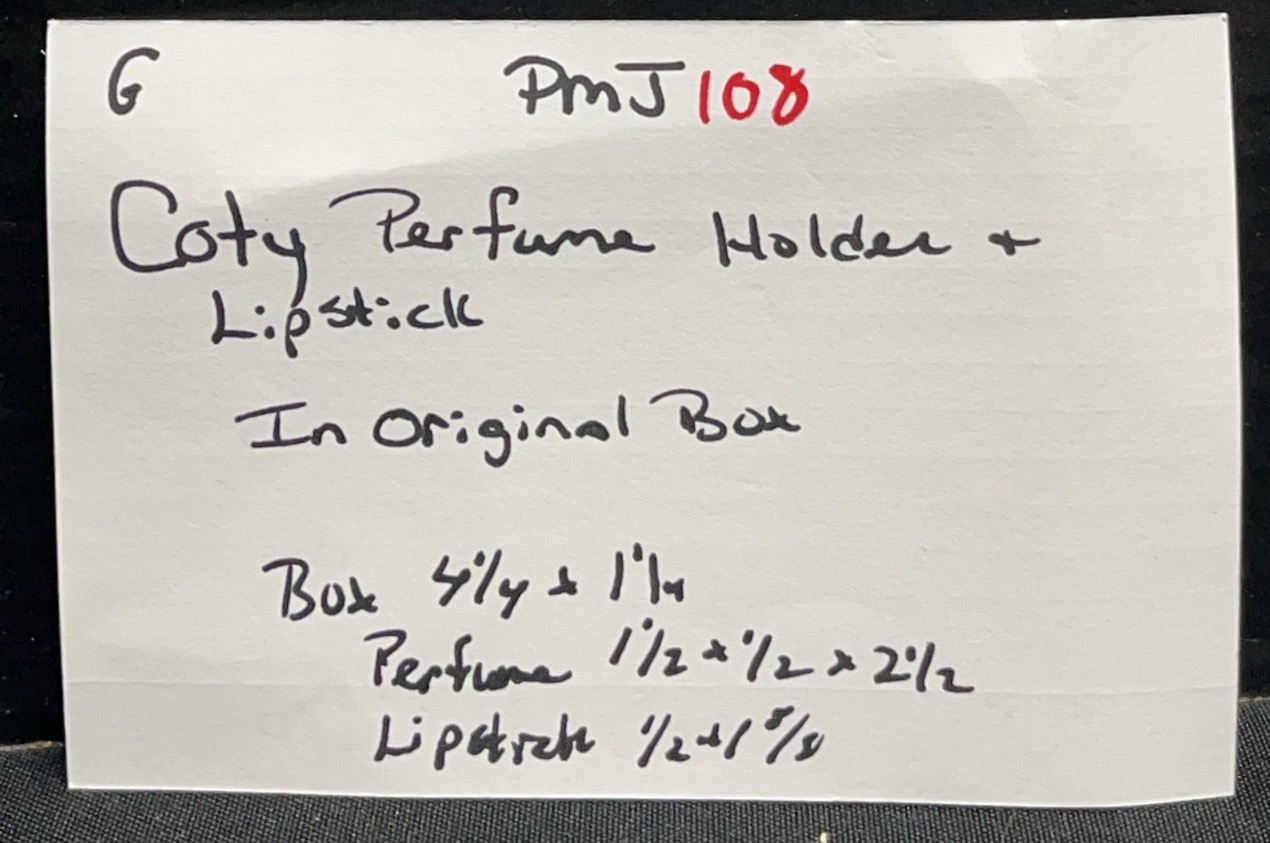 G PmJ 108
Coty Perfume Holder +
Lipstick
In Original Box
Box 4 1/4 x 1 1/4
Perfume 1 1/2 x 1/2 x 2 1/2
Lipstick 1/2 x 1